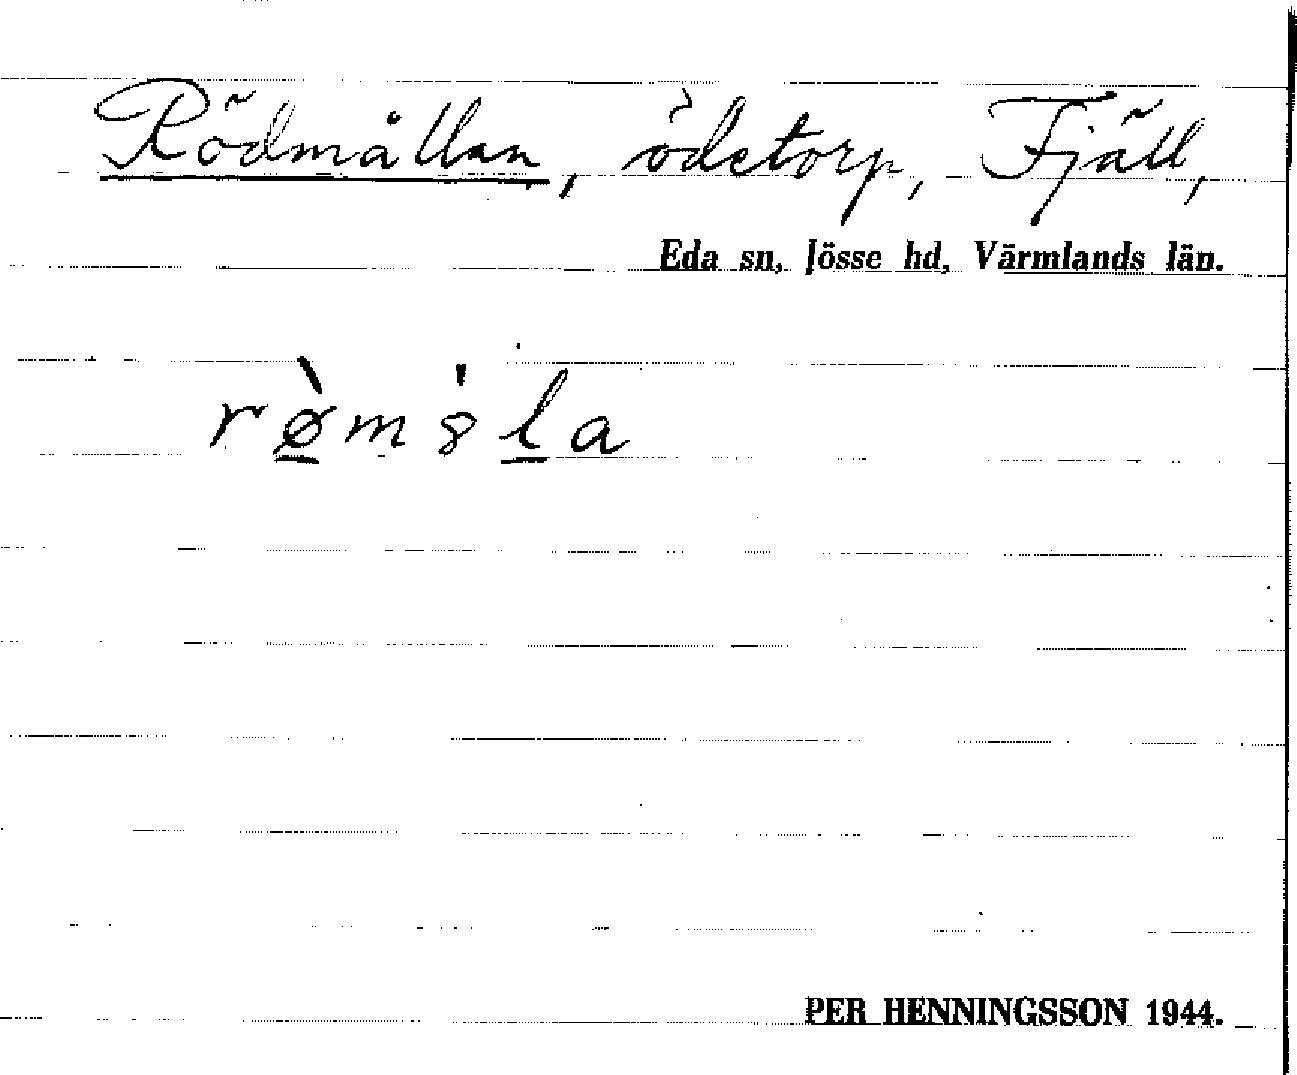 Rödmållan, ödetorp, Fjäll,
Eda sn, Jösse hd, Värmlands län.
rø̀m8̍la
PER HENNINGSSON 1944.